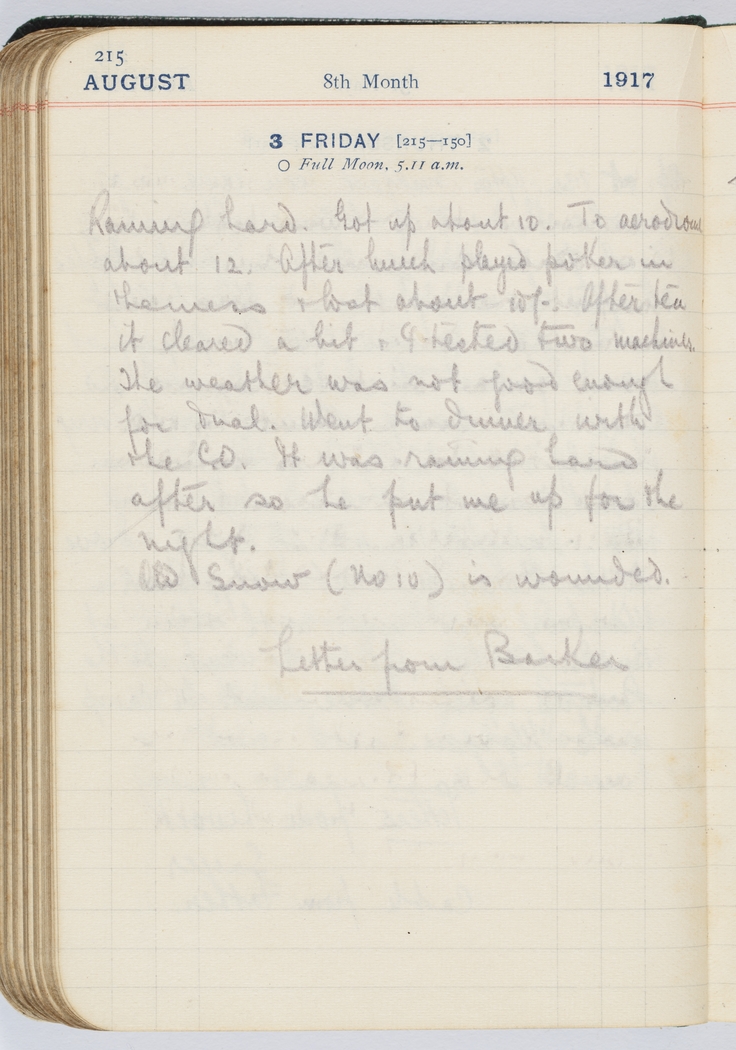 215
AUGUST 8th Month 1917
3 FRIDAY [215—150]
○ Full Moon, 5.11 a.m.
Raining hard. Got up about 10. To aerodrome
about 12. After lunch played poker in
the mess & lost about 10/-. After tea
it cleared a bit & I tested two machines.
The weather was not good enough
for dual. Went to dinner with
the CO. It was raining hard
after so he put me up for the
night.
Old Snow (No 10) is wounded.
Letter from Barker